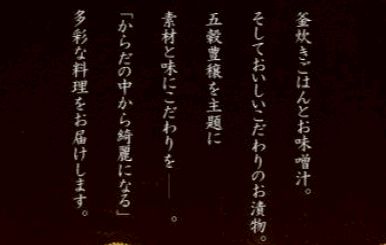 釜炊きごはんとお味噌汁。
そしておいしいこだわりのお漬物。
五穀豊穣を主題に
素材と味にこだわりを──。
「からだの中から綺麗になる」
多彩な料理をお届けします。